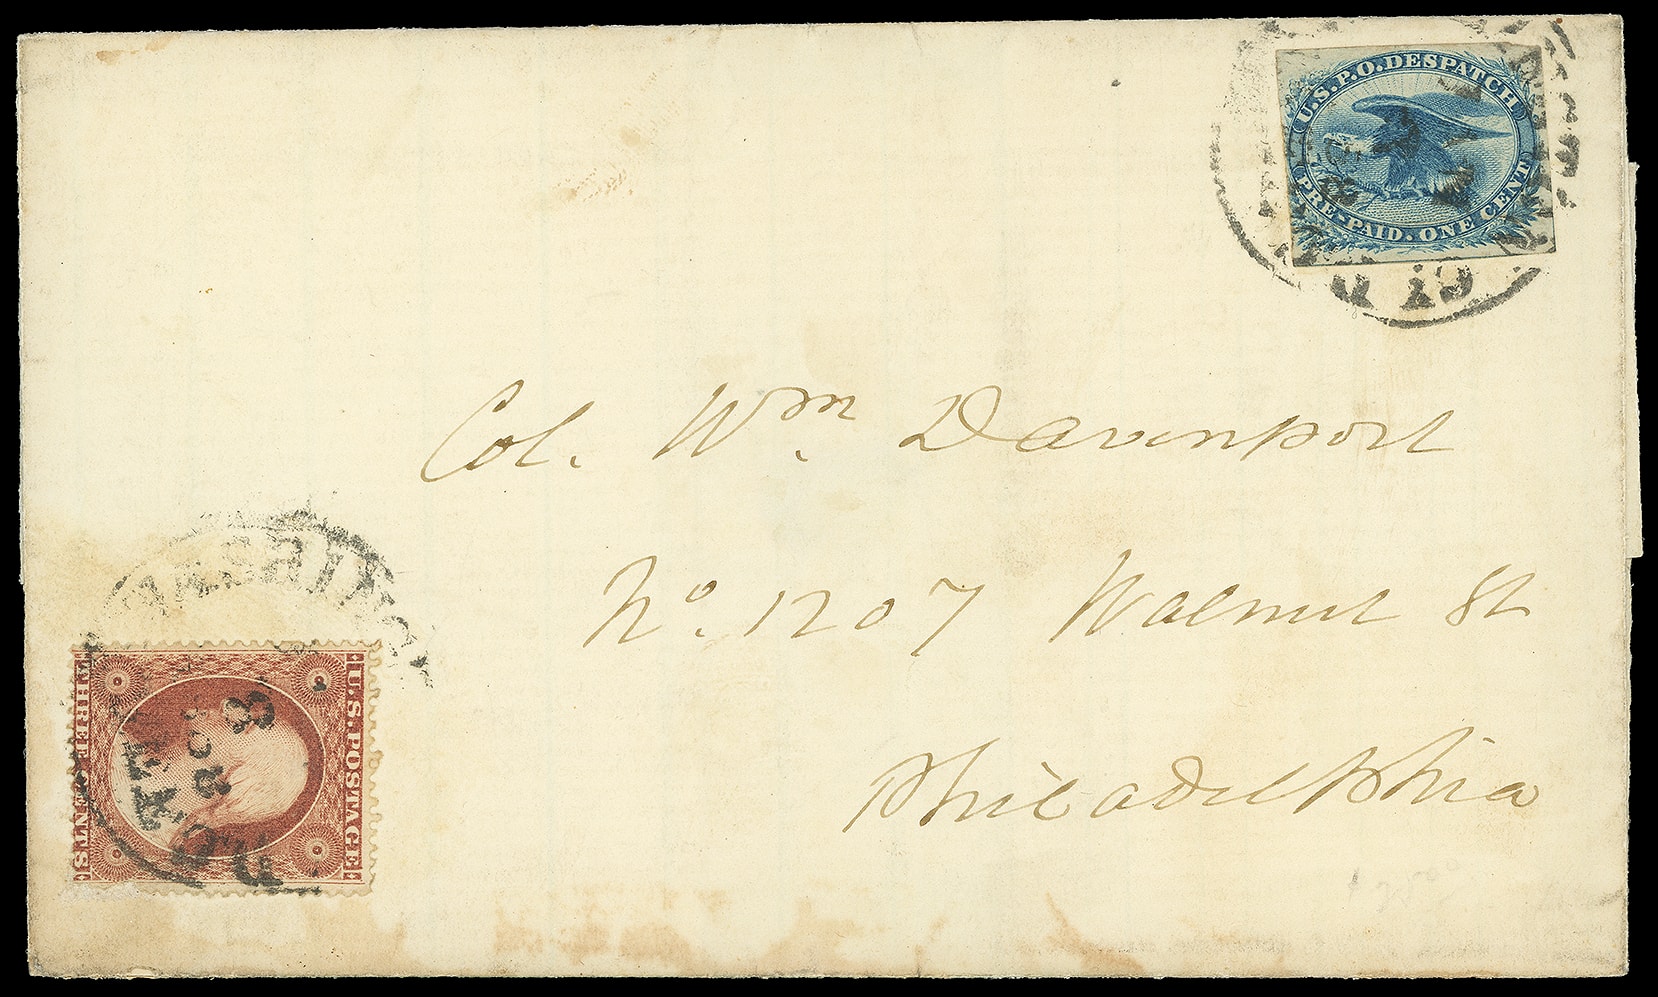 U.S.P.O. DESPATCH
PRE-PAID. ONE CENT
Col. Wm. Davenport
No. 1207 Walnut St
Philadelphia
WASHINGTO
D.C.
8
U.S. POSTAGE
THREE CENTS